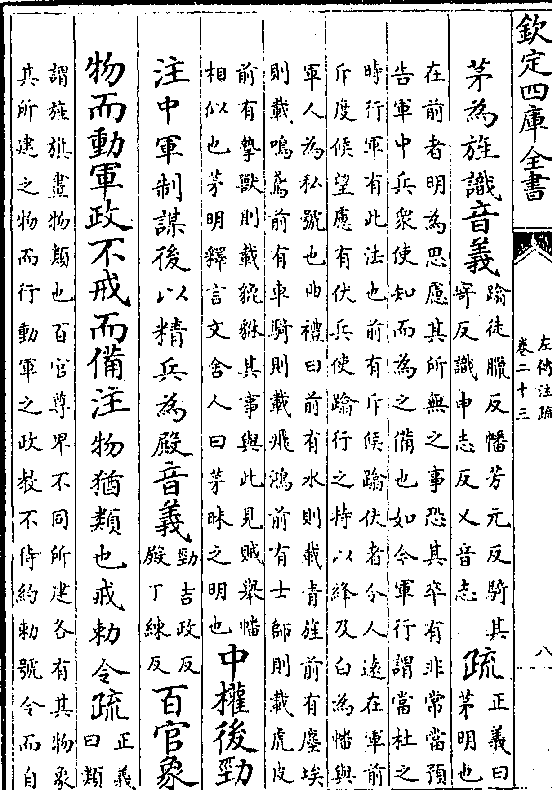 欽定四庫全書
左傳注疏
卷二十三
八
茅為旌識音義
蹹徒臘反幡芳元反騎其
寄反識申志反又音志
疏
正義曰
茅明也
在前者明為思慮其所無之事恐其卒有非常當預
告軍中兵衆使知而為之備也如今軍行謂當杜之
時行軍有此法也前有斥候蹹伏者令人遠在軍前
斥度候望慮有伏兵使蹹行之持以絳及白為幡與
軍人為私號也曲禮曰前有水則載青旌前有塵埃
則載鳴鳶前有車騎則載飛鴻前有士師則載虎皮
前有摯獸則載貔貅其事與此見賊舉幡
相似也茅明釋言文舍人曰茅昧之明也
中權後勁
注中軍制謀後以精兵為殿音義
勁吉政反
殿丁練反
百官象
物而動軍政不戒而備注物猶類也戒勅令疏
正義
曰類
謂旌旗畫物類也百官尊卑不同所建各有其物象
其所建之物而行動軍之政教不待約勅號令而自